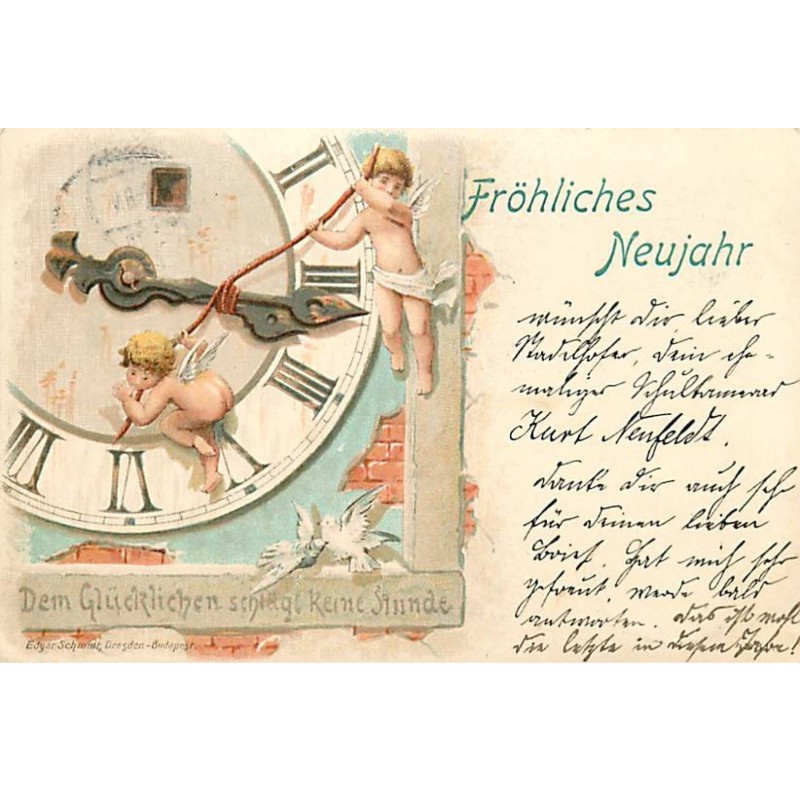 Fröhliches
Neujahr
wünscht Dir, lieber
Stadelhofer, Dein ehe-
maliger Schulkamerad
Kurt Neufeldt.
Danke Dir auch sehr
für Deinen lieben
Brief. Hat mich sehr
gefreut, werde bald
antworten. Das ist wohl
die letzte in diesem
Dem Glücklichen schlägt keine Stunde
Edgar Schmidt, Dresden-Budapest.
II
III
IIII
V
VI
VII